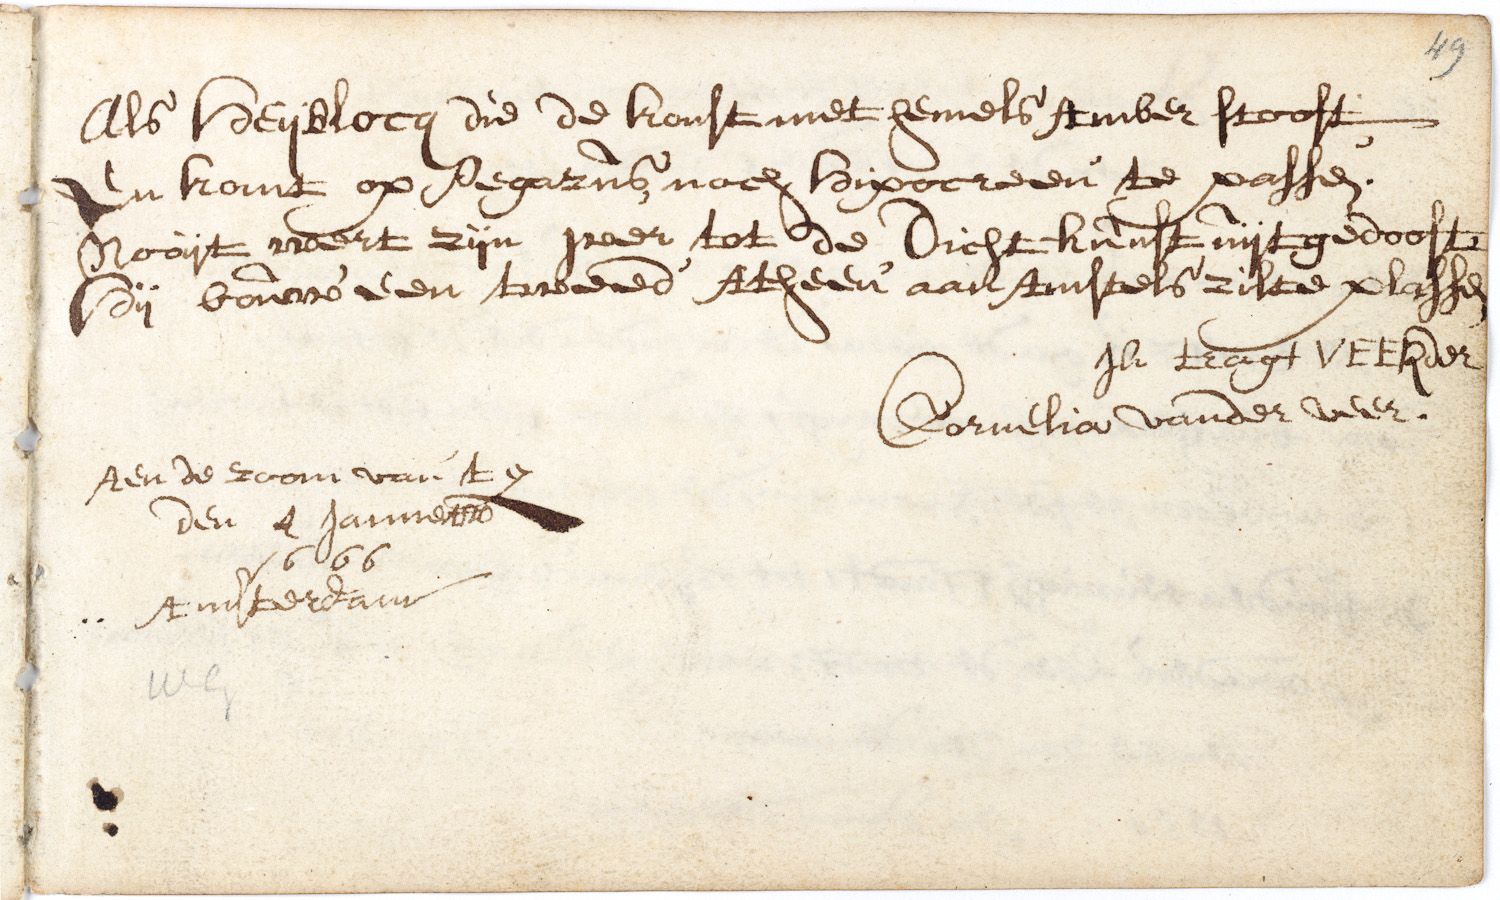 49
Als Heijblocq die de konst met hemels Amber stooft
En komt op Pegazus, noch Hipocreen te passen.
Nooijt wert zijn ijver tot de Dichtkunst uijtgedooft
Hij bouwe een tweed' Atheen aan Amstels zilte plassen
Ik tragt VEERder
Cornelia vander Veer.
Aen de zoom van 't Y
den 4 Januarij
1666
Amsterdam